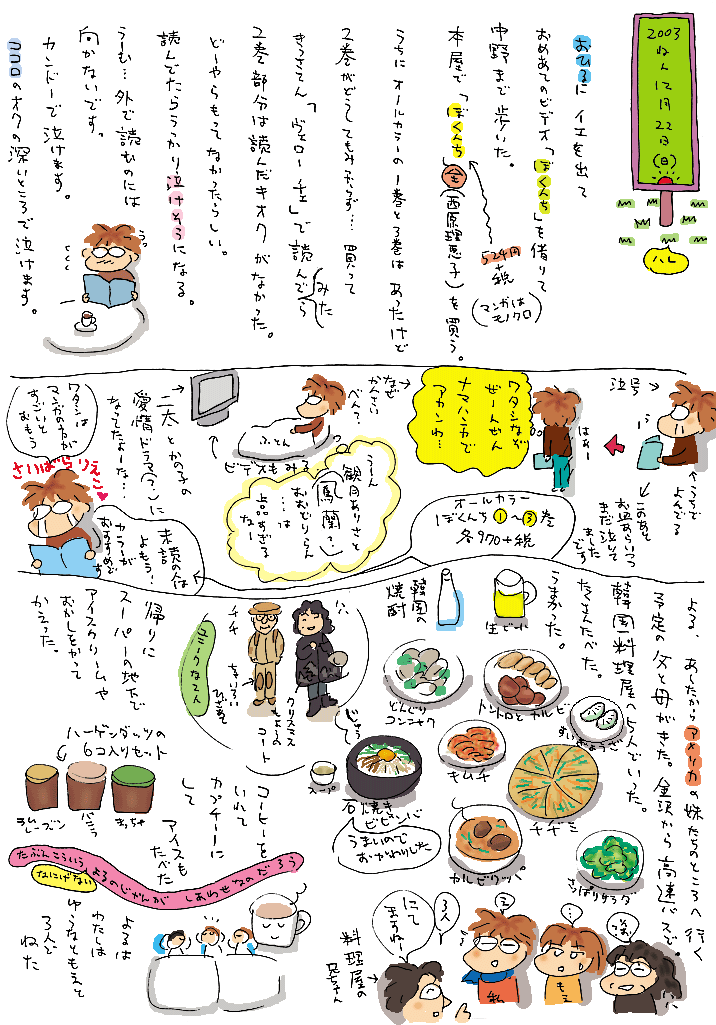 2003
ねん12
月
22
日
(日)
ハレ
おひるに イエを出て
おめあてのビデオ「ぼくんち」を借りて
中野まで歩いた。
本屋で「ぼくんち 全(西原理恵子)を買う。
524円
+税
(マンガは
モノクロ)
うちにオールカラーの1巻と3巻は あったけど
2巻がどうしてもみあたらず… 買って
きっさてん「ヴェローチェ」で読んだら
みた
2巻部分は読んだキオクがなかった。
どーやらもってなかったらしい。
読んでたらうっかり泣けそうになる。
うーむ… 外で読むのには
向かないです。
カンドーで泣けます。
ココロのオクの深いところで泣けます。
うっ
泣号
うちで
よんでる
このあと
お皿あらいつつ
まだ泣いて
ました
です
はぁー
ワタシなぞ
ぜーんぜん
ナマハンカで
アカンわ…
なぜ
かんさい
べん?
ふとん
ビデオもみる
うーん
観月ありさと
(鳳蘭って)
おおとりらん
…は
上品すぎる
なー
オールカラー
ぼくんち①〜③巻
各970+税
二太とかの子の
愛情ドラマ(?)に
なってたなー…
ワタシは
マンガの方が
すごいと
おもう
さいばらりえこ
未読の人は
よもう!
カラーが
おすすめで
す
よる、あしたからアメリカの妹たちのところへ行く
予定の父と母がきた。金沢から高速バスで。
韓国料理屋へ5人でいった。
たくさんたべた。
うまかった。
生ビール
韓国の
焼酎
どんぐり
コンニャク
トントロとカルビ
すいぎょうざ
キムチ
チヂミ
じゅうっ
石焼き
ビビンバ
スープ
うまいので
おかわりした
カルビクッパ
さっぱりサラダ
ハハ
クリスマス
もようの
コート
チチ
ちゃいろい
ひざあて
ユニークな2人
帰りに
スーパーの地下で
アイスクリームや
おかしをかって
かえった。
ハーゲンダッツの
6コ入りセット
ラム
レーズン
バニラ
まっちゃ
コーヒーを
いれて
カプチーノに
して
アイスも
たべた
たぶんこういう よるのじかんが しあわせなのだろう
なにげない
よるは
わたしは
ゆうなともえと
3人で
ねた
3人
にて
ますね!
料理屋の
兄ちゃん
え
…
私
もえ